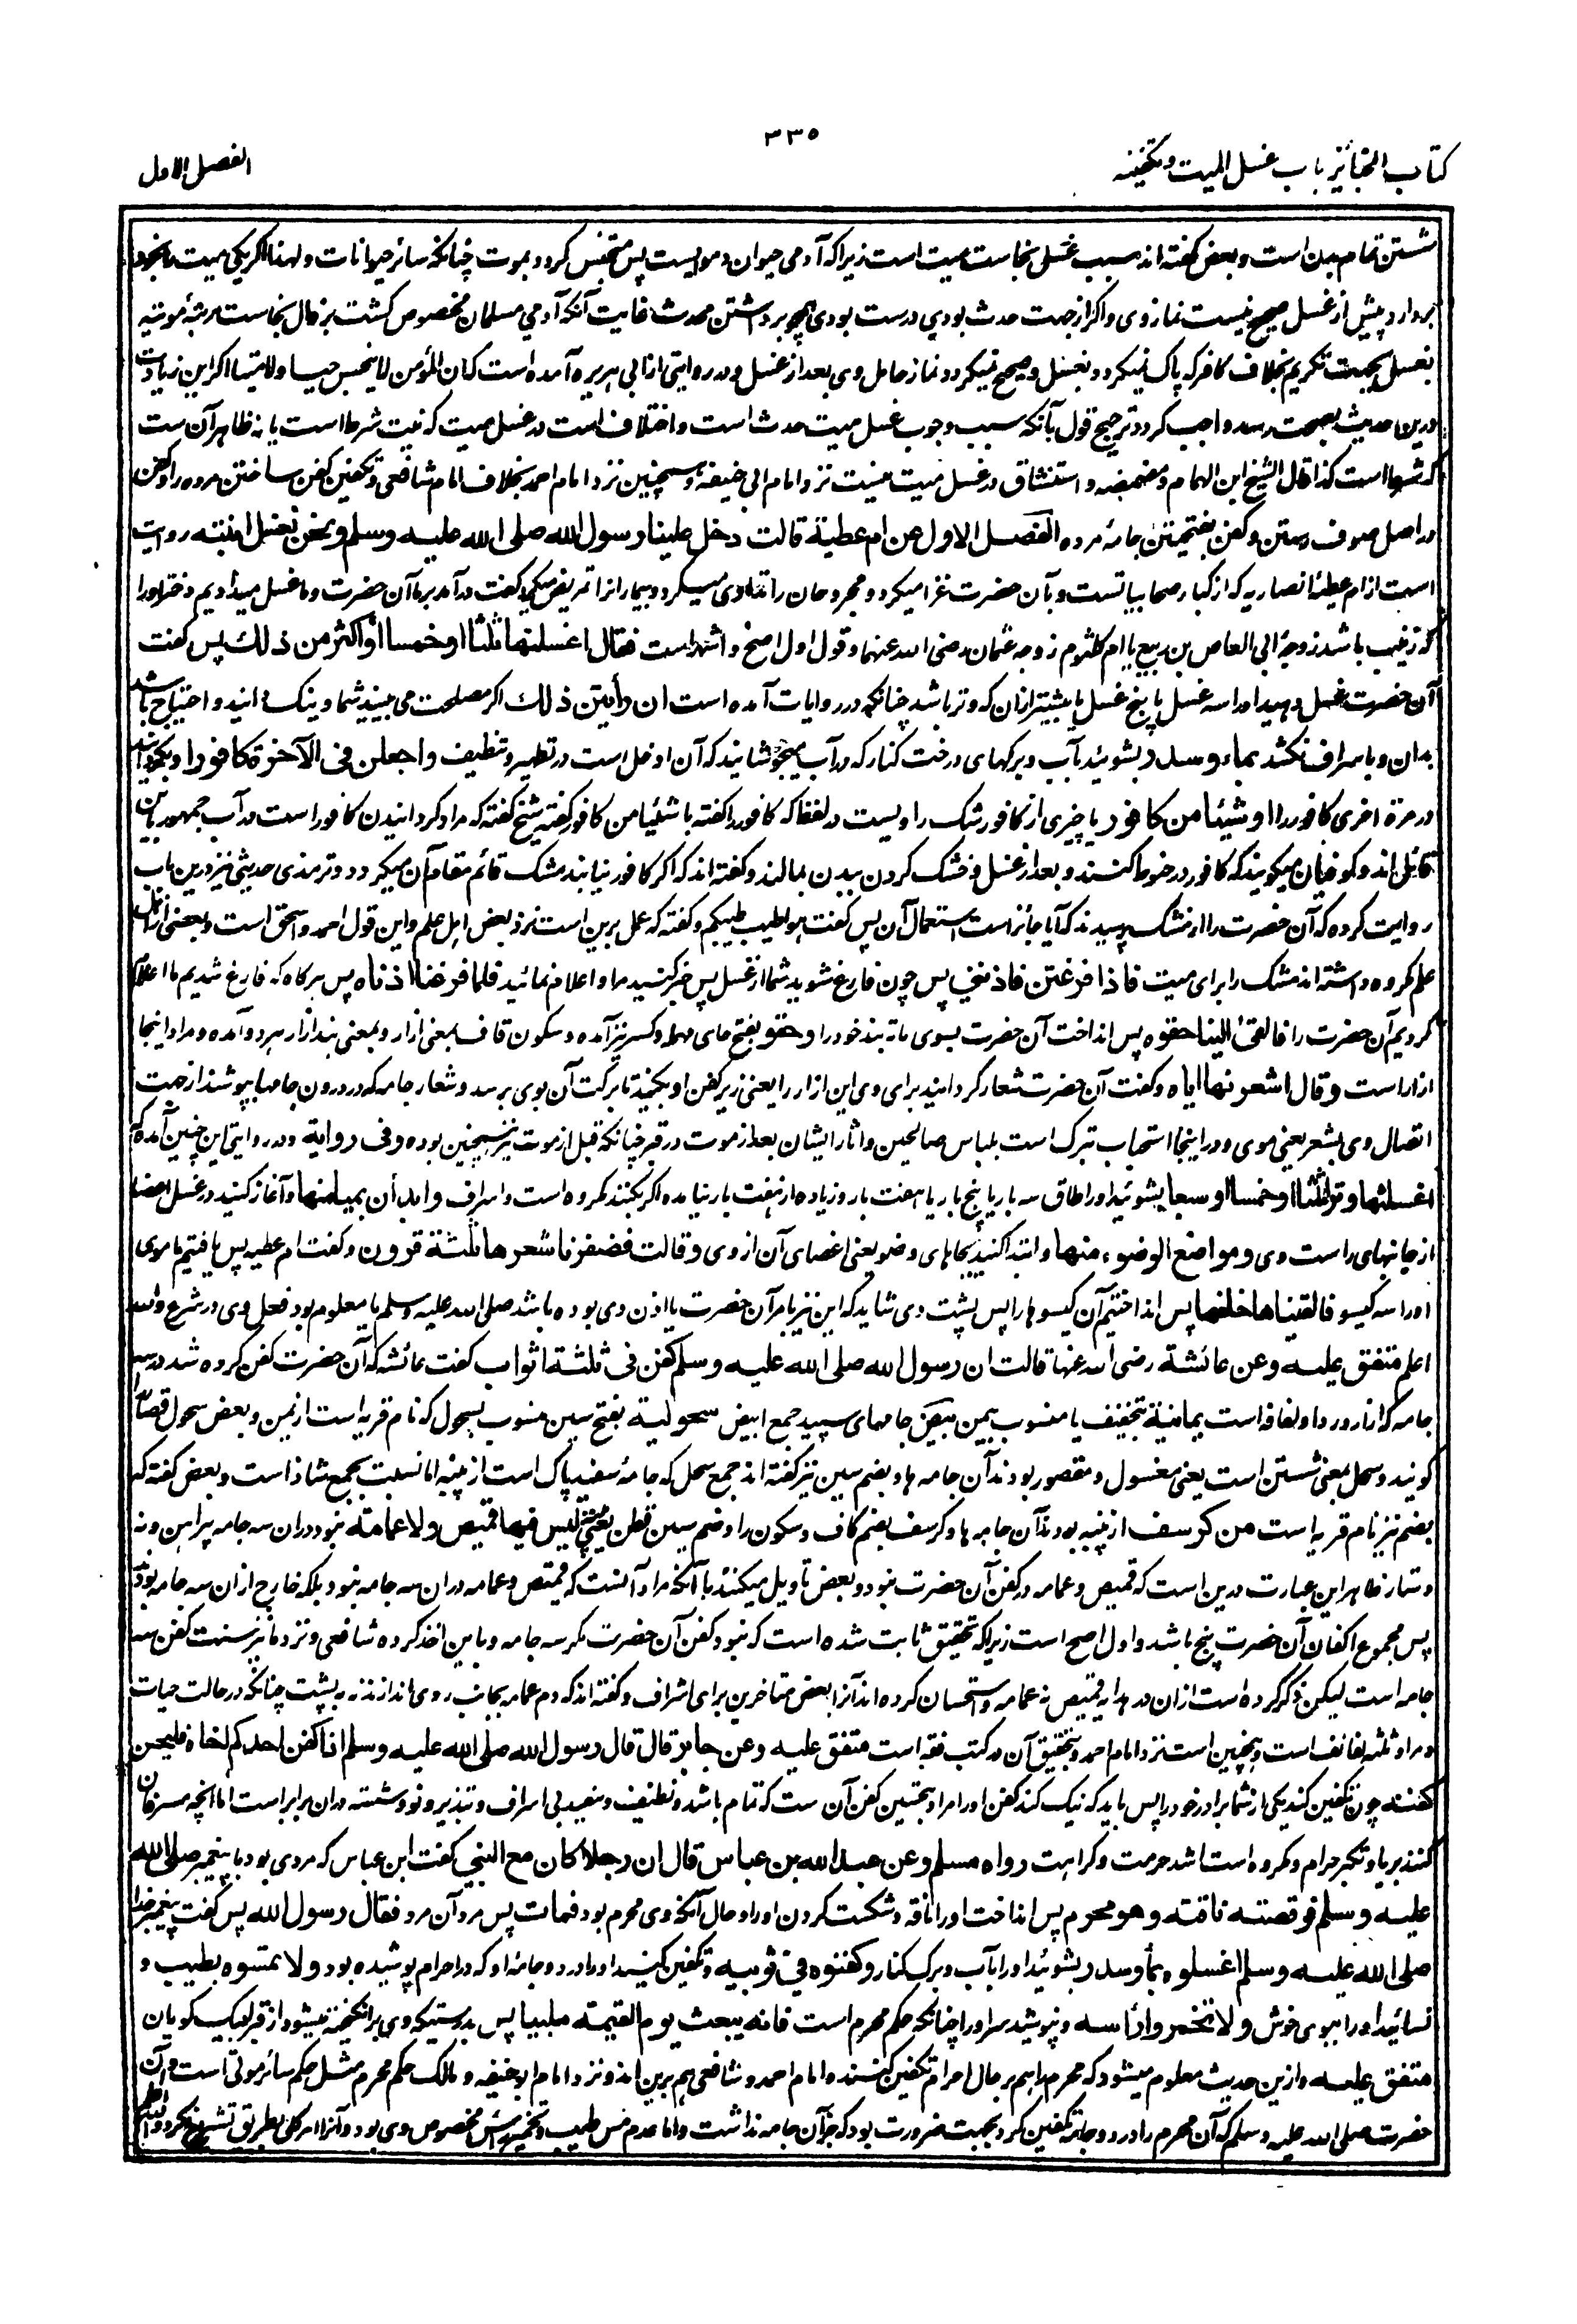 ۳۳۵
کتاب الجنائز باب غسل المیت و تکفینه
الفصل الاول
شستن تمام بدن است و بعض گفته اند سبب غسل نجاست میت است زیراکه آدمی حیوان دمویست پس متنجس گردد بموت چنانکه سائر حیوانات و لهذا اگر یکی میت را بخود
بردارد پیش از غسل صحیح نیست نماز وی و اگر از جهت حدث بودی درست بودی همچو برداشتن محدث غایت آنکه آدمی مسلمان مخصوص گشت بزوال نجاست مرتبهٔ موتیه
بغسل بجهت تکریم بخلاف کافر که پاک نمیگردد بغسل و صحیح نمیگردد نماز حامل وی بعد از غسل و در روایتی از ابی هریره آمده است که ان المؤمن لا ینجس حیا و لا میتا اگر این زیادت
درین حدیث بصحت رسد واجب گردد ترجیح قول بآنکه سبب وجوب غسل میت حدث است و اختلاف است در غسل میت که نیت شرط است یا نه ظاهر آن ست
که شرط است کذا قال الشیخ ابن الهمام و مضمضه و استنشاق در غسل میت نیست نزد امام ابی حنیفه و همچنین نزد امام احمد بخلاف امام شافعی و تکفین کفن ساختن مرده را و کفن
در اصل صوف رستن و کفن بفتحتین جامهٔ مرده الفصل الاول عن ام عطیة قالت دخل علینا رسول الله صلی الله علیه وسلم و نحن نغسل ابنته روایت
است از ام عطیهٔ انصاریه که از کبار صحابیاتست و بآن حضرت غزا میکرد و مجروحان را تداوی میکرد و بیمارانرا تمریض میکرد گفت درآمد بر ما آن حضرت و ما غسل میدادیم دختر او را
که زینب باشد زوجهٔ ابی العاص بن ربیع یا ام کلثوم زوجه عثمان رضی الله عنهما و قول اول اصح و اشهر است فقال اغسلنها ثلثا او خمسا او اکثر من ذلك پس گفت
آن حضرت غسل دهید او را سه غسل یا پنج غسل یا بیشتر از ان که وتر باشد چنانکه در روایات آمده است ان رأیتن ذلك اگر مصلحت می بینید شما و نیک دانید و احتیاج باشد
بدان و باسراف نکشد بماء و سدر بشوئید بآب و برگهای درخت کنار که در آب بجوشانید که آن ادخل است در تطهیر و تنظیف و اجعلن فی الآخرة کافورا و بگردانید
در مرة اخری کافور را او شیئا من کافور یا چیزی از کافور شک راویست در لفظ که کافورا گفته یا شیئا من کافور گفته شیخ گفته که مراد گردانیدن کافور است در آب جمهور باین
قائل اند و کوفیان میگویند که کافور در حنوط کنند و بعد از غسل و خشک کردن ببدن بمالند و گفته اند که اگر کافور نیابند مشک قائم مقام آن میگردد و ترمذی حدیثی نیز درین باب
روایت کرده که آن حضرت را از مشک پرسیدند که آیا جائز است استعمال آن پس گفت هو اطیب طیبکم و گفته که عمل برین است نزد بعض اهل علم و این قول احمد و اسحق است و بعضی از اهل
علم مکروه داشته اند مشک را برای میت فاذا فرغتن فاذننی پس چون فارغ شوید شما از غسل پس خبر کنید مرا و اعلام نمائید فلما فرغنا اذناه پس هرگاه که فارغ شدیم ما اعلام
کردیم آن حضرت را فالقی الینا حقوه پس انداخت آن حضرت بسوی ما ته بند خود را و حقو بفتح حای مهمله و کسر نیز آمده و سکون قاف بمعنی ازار و بمعنی بند ازار هر دو آمده و مراد اینجا
ازار است و قال اشعرنها ایاه و گفت آن حضرت شعار گردانید برای وی این ازار را یعنی زیر کفن او بکنید تا برکت آن بوی برسد و شعار جامه که در درون جامها بپوشند از جهت
اتصال وی بشعر یعنی موی و در اینجا استحباب تبرک است بلباس صالحین و آثار ایشان بعد از موت در قبر چنانکه قبل از موت نیز همچنین بوده و فی روایة و در روایتی این چنین آمده که
اغسلنها وترا ثلثا او خمسا او سبعا بشوئید او را طاق سه بار یا پنج بار یا هفت بار و زیاده از هفت بار نیامده اگر بکنند مکروه است و اسراف و ابدأن بمیامنها و آغاز کنید در غسل اعضا
از جانبهای راست وی و مواضع الوضوء منها و ابتدا کنید بجاهای وضو یعنی اعضای آن از وی و قالت فضفرنا شعرها ثلثة قرون و گفت ام عطیه پس بافتیم ما موی
او را سه گیسو فالقیناها خلفها پس انداختیم آن گیسوها را پس پشت وی شاید که این نیز بامر آن حضرت یا اذن وی بوده باشد صلی الله علیه وسلم یا معلوم بود فعل وی در شرع والله
اعلم متفق علیه و عن عائشة رضی الله عنها قالت ان رسول الله صلی الله علیه وسلم کفن فی ثلثة اثواب گفت عائشه که آن حضرت کفن کرده شد در سه
جامه که ازار و ردا و لفافه است یمانیة بتخفیف یا منسوب بیمن بیض جامهای سپید جمع ابیض سحولیة بفتح سین منسوب بسحول که نام قریه است از یمن و بعض سحول قصار را
گویند و سحل بمعنی شستن است یعنی مغسول و مقصور بودند آن جامه ها و بضم سین نیز گفته اند جمع سحل که جامهٔ سفید پاک است از پنبه اما نسبت بجمع شاذ است و بعض گفته که
بضم نیز نام قریه است من کرسف از پنبه بودند آن جامه ها و کرسف بضم کاف و سکون را و ضم سین قطن یعنی پنبه لیس فیها قمیص و لا عمامة نبود دران سه جامه پیراهن و نه
دستار ظاهر این عبارت درین است که قمیص و عمامه در کفن آن حضرت نبود و بعض تاویل میکنند بآنکه مراد آنست که قمیص و عمامه دران سه جامه نبود بلکه خارج ازان سه جامه بود
پس مجموع اکفان آن حضرت پنج باشد و اول اصح است زیراکه بتحقیق ثابت شده است که نبود کفن آن حضرت مگر سه جامه و باین اخذ کرده شافعی و نزد ما نیز سنت کفن سه
جامه است لیکن ذکر کرده است ازان در هدایه قمیص نه عمامه و استحسان کرده اند آنرا بعض متاخرین برای اشراف و گفته اند که دم عمامه بجانب روی اندازند نه به پشت چنانکه در حالت حیات
و مراد ثلثه لفائف است و همچنین است نزد امام احمد و تحقیق آن در کتب فقه است متفق علیه و عن جابر قال قال رسول الله صلی الله علیه وسلم اذا کفن احدکم اخاه فلیحسن
کفنه چون تکفین کند یکی از شما برادر خود را پس باید که نیک کند کفن او را مراد بتحسین کفن آن ست که تمام باشد و نظیف و سفید بی اسراف و تبذیر و نو و شسته دران برابر است اما آنچه مسرفان
کنند بریا و تکبر حرام و مکروه است اشد حرمت و کراهت رواه مسلم و عن عبد الله بن عباس قال ان رجلا کان مع النبی گفت ابن عباس که مردی بود با پیغمبر صلی الله
علیه وسلم فوقصته ناقته و هو محرم پس انداخت او را ناقه و شکست گردن او را و حال آنکه وی محرم بود فمات پس مرد آن مرد فقال رسول الله پس گفت پیغمبر خدا
صلی الله علیه وسلم اغسلوه بماء و سدر بشوئید او را بآب و برگ کنار و کفنوه فی ثوبیه و تکفین کنید او را در دو جامهٔ او که در احرام پوشیده بود و لا تمسوه بطیب و
نسائید او را ببوی خوش و لا تخمروا رأسه و نپوشید سر او را چنانکه حکم محرم است فانه یبعث یوم القیمة ملبیا پس بدرستیکه وی برانگیخته میشود از قبر لبیک گویان
متفق علیه و ازین حدیث معلوم میشود که محرم را هم بر حال احرام تکفین کنند و امام احمد و شافعی هم برین اند و نزد امام ابو حنیفه و مالک حکم محرم مثل حکم سائر موتی است و آن
حضرت صلی الله علیه وسلم که آن محرم را در دو جامه تکفین کرد بجهت ضرورت بود که جز آن جامه نداشت و اما عدم مس طیب و تخمیر رأس مخصوص وی بود و آنرا امر کلی بطریق تشریع نکرد والله اعلم